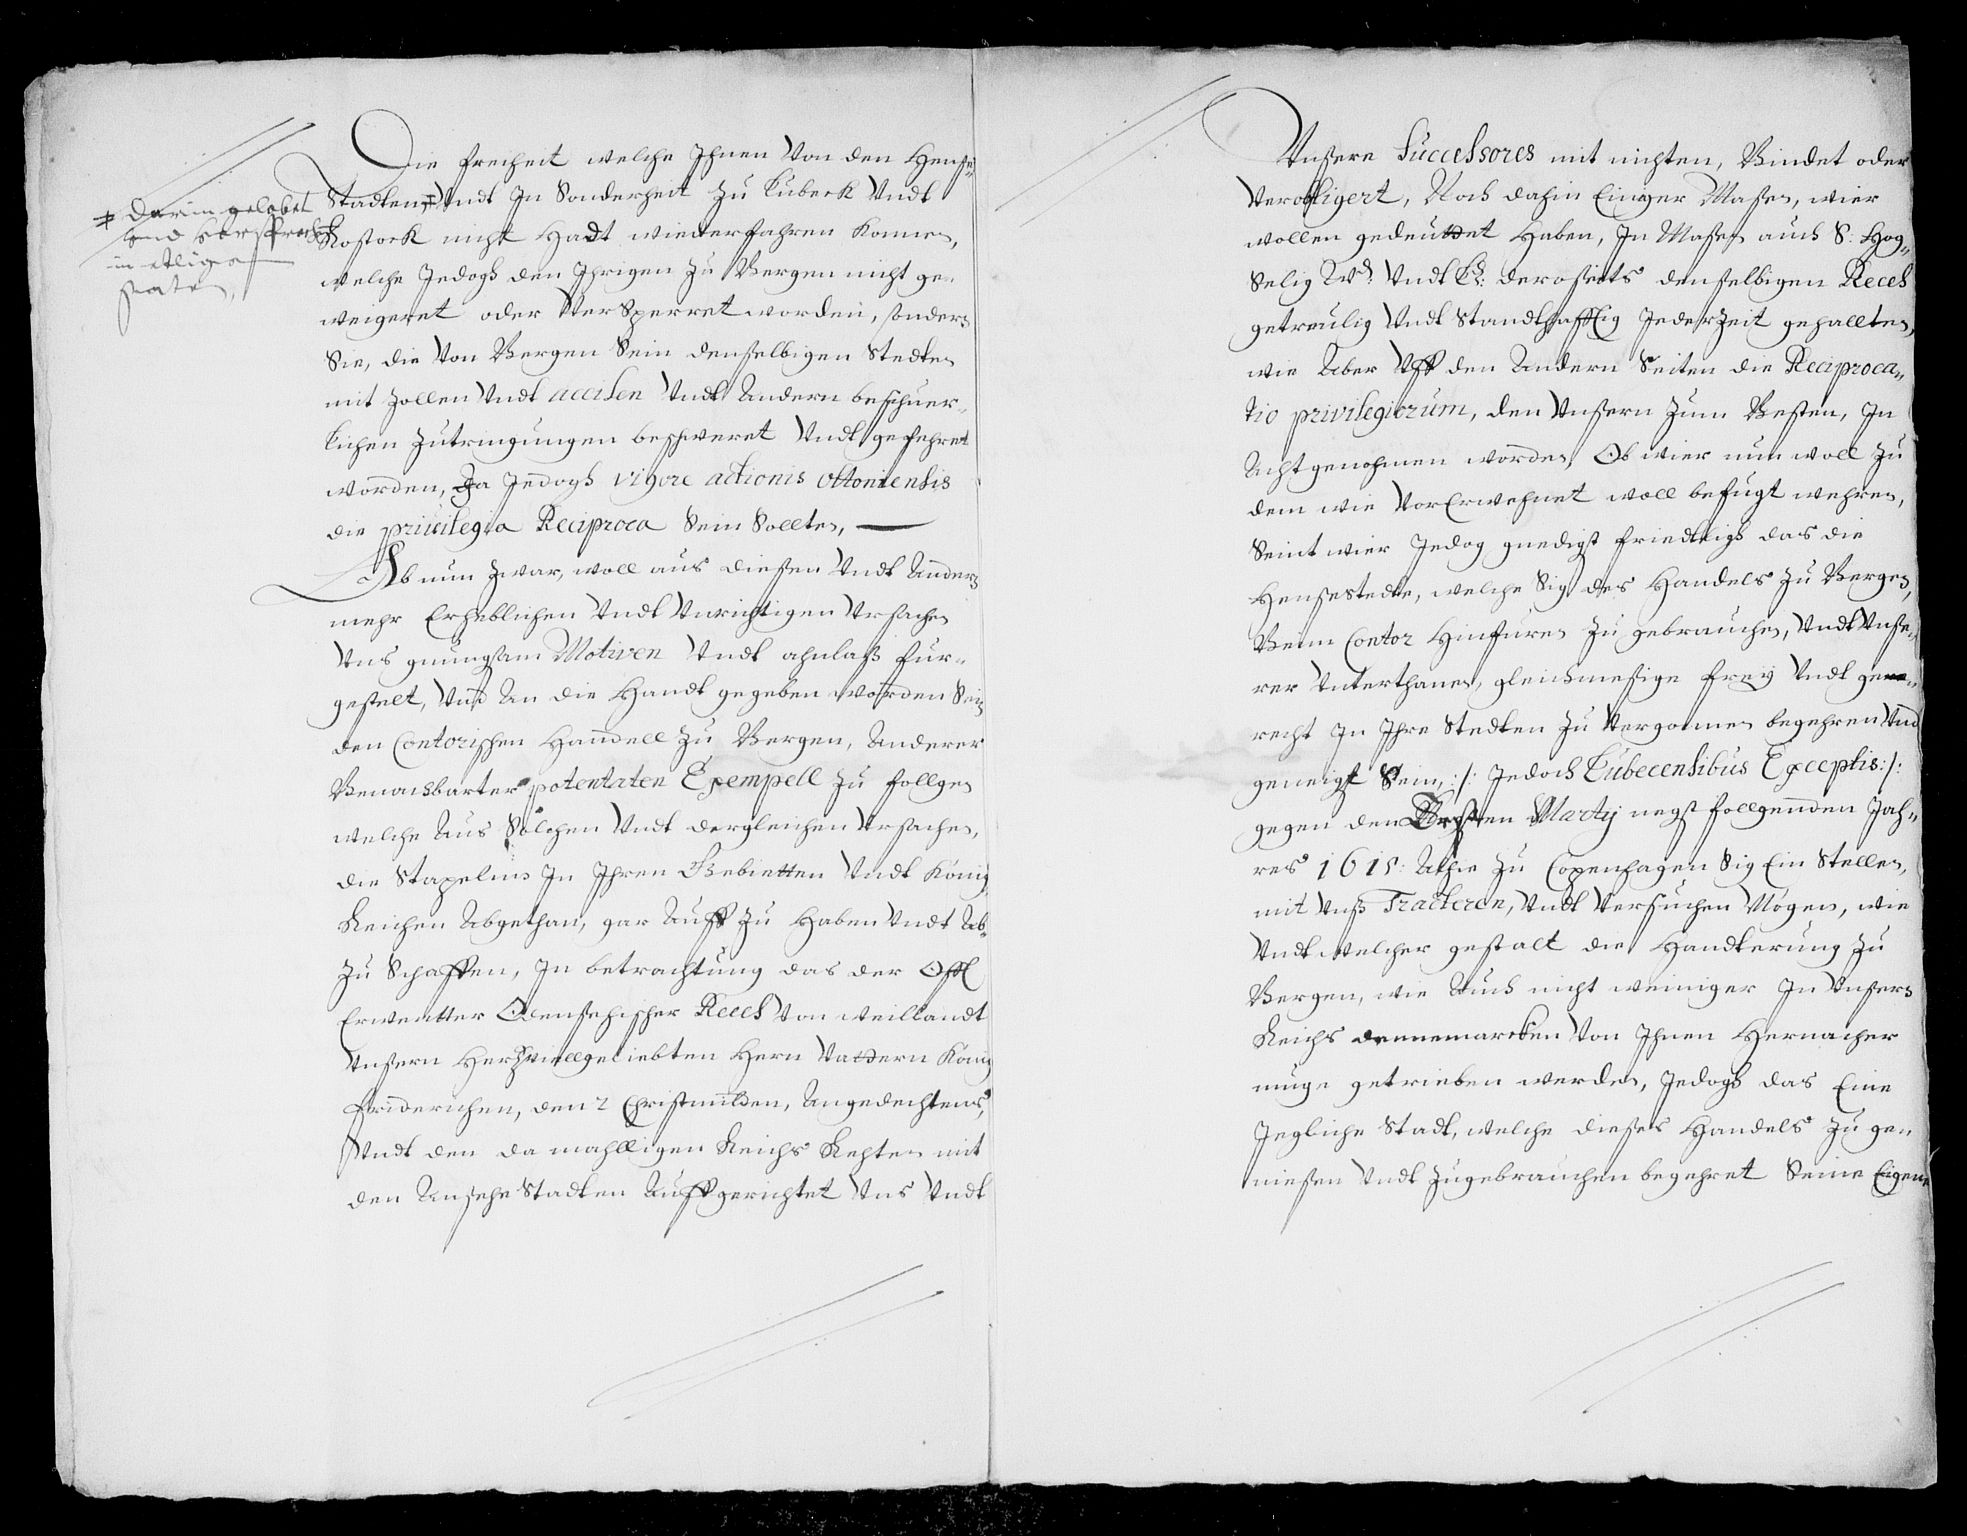 Die freiheit welche Ihnen Von den Hense-
Stadten, Vndt In Sonderheit zu Lubeck Vndt
Rostock nicht Hadt wiederfahren konnen,
welche Jedogh den Ihrigen zu Bergen nicht ge-
weigeret oder VerSperret worden, sondern
Sie, die Von Bergen Sein denselbigen Stedten
mit zollen Vndt accisen Vndt Andern beschuer-
lichen zutringungen beschweret Vndt gefehret
worden, Da Jedogh vigore actionis ottoniensis
die privilegia Reciproca Sein Sollten,
Ob nun zwar, woll aus diesen Vndt Andern
mehr Erheblichen Vndt Vnrichtigen Vrsachen
Vns gnungsam Motiven Vndt ahnlaß fur-
gestelt, Vnd An die Handt gegeben worden Sein
den Contorischen Handell zu Bergen, Anderer
Benachbarter potentaten Exempell zu follgen
welche Aus Solchen Vndt dergleichen Vrsachen,
die Stapelinn In Ihren Gebietten Vndt König
Reichen Abgethan, gar Auff zu Haben Vndt Ab-
zu Schaffen, In betrachtung das der Offt
Erwentter Odensehischer Recess Von weillandt
Vnsern Herzviellgeliebten Hern Vattern König
Friderichen, den 2 Christmilden, Angedechtens,
Vndt den damahlligen Reichs Rehten mit
den Ansehe Stadten Auffgerichtet Vns Vndt
# darin gelobet
vnd versprochen
in etligen
staten,
Vnsere Successores mit nichten, Bindet oder
Verobligert, Noch dahin Einiger Masen, wier
wollen gedeuttet Haben, In Masen auch S: Hog-
Selig Vndt deroseits denselbigen Recess
getreulig Vndt Standthafftig Jederzeit gehallten,
wie Aber Vff den Andern Seiten die Reciproca-
tio privilegiorum, den Vnsern zum Besten, In
Acht genohmen worden, Ob wier nun woll zu
dem wie VorErwehnet woll befugt wehren,
Seint wier Jedog gnedigst friedtligh das die
Hensestedte, welche Sig des Handels zu Bergen,
Beim Contor Hinfuren zu gebrauchen, Vndt Vnse-
rer Vnterthanen, gleichmesige frey Vndt ge-
recht In Ihre Stedten zu Vergonnen begehren Vnd
geneigt Sein, :/: Jedoch Lubecensibus Exceptis :/:
gegen den Ersten Martij negst follgenden Jah-
res 1615: Alhie zu Copenhagen Sig Ein Stellen,
mit Vnß Tracteren, Vndt Versuchen Mögen, wie
Vndt welcher gestalt die Handterung zu
Bergen, wie Auch nicht weiniger In Vnsern
Reichs dennemarcken Von Ihnen Hernacher
muge getrieben werden, Jedogh das Eine
Jegliche Stadt, welche dieses Handels zu ge-
niesen Vndt zugebrauchen begehret Seine Eigene